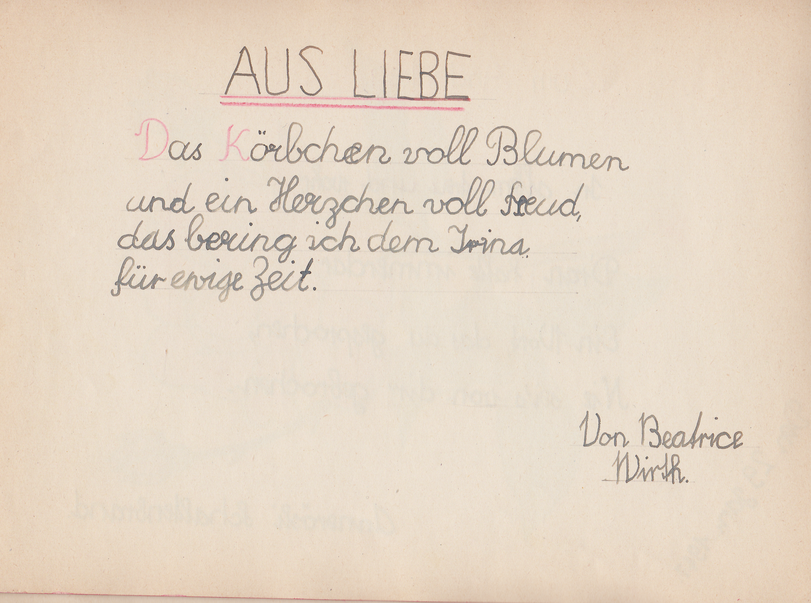 AUS LIEBE
Das Körbchen voll Blumen
und ein Herzchen voll Freud,
das bering ich dem Irina.
für ewige Zeit.
Von Beatrice
Wirth.